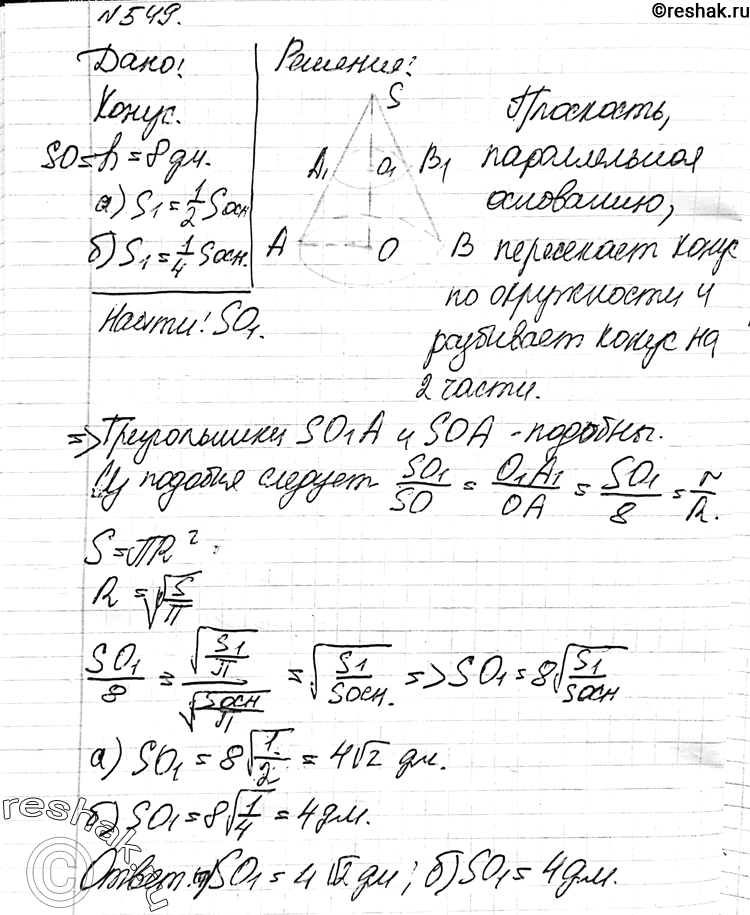 ©reshak.ru
№549.
Дано:
Конус.
SO=h=8дм.
а) S₁=1/2 Sосн
б) S₁=1/4 Sосн.
Найти: SO₁.
Решение:
S
A₁ O₁ B₁
A O B
Плоскость,
параллельная
основанию,
пересекает конус
по окружности и
разбивает конус на
2 части.
=> Треугольники SO₁A и SOA - подобны.
Из подобия следует SO₁/SO = O₁A₁/OA = SO₁/8 = r/R.
S=πR²
R=√(S/π)
SO₁/8 = √(S₁/π)/√(Sосн/π) = √(S₁/Sосн.) => SO₁=8√(S₁/Sосн)
а) SO₁=8√(1/2)=4√2 дм.
б) SO₁=8√(1/4)=4дм.
Ответ: а) SO₁=4√2 дм; б) SO₁=4дм.
reshak.ru
©